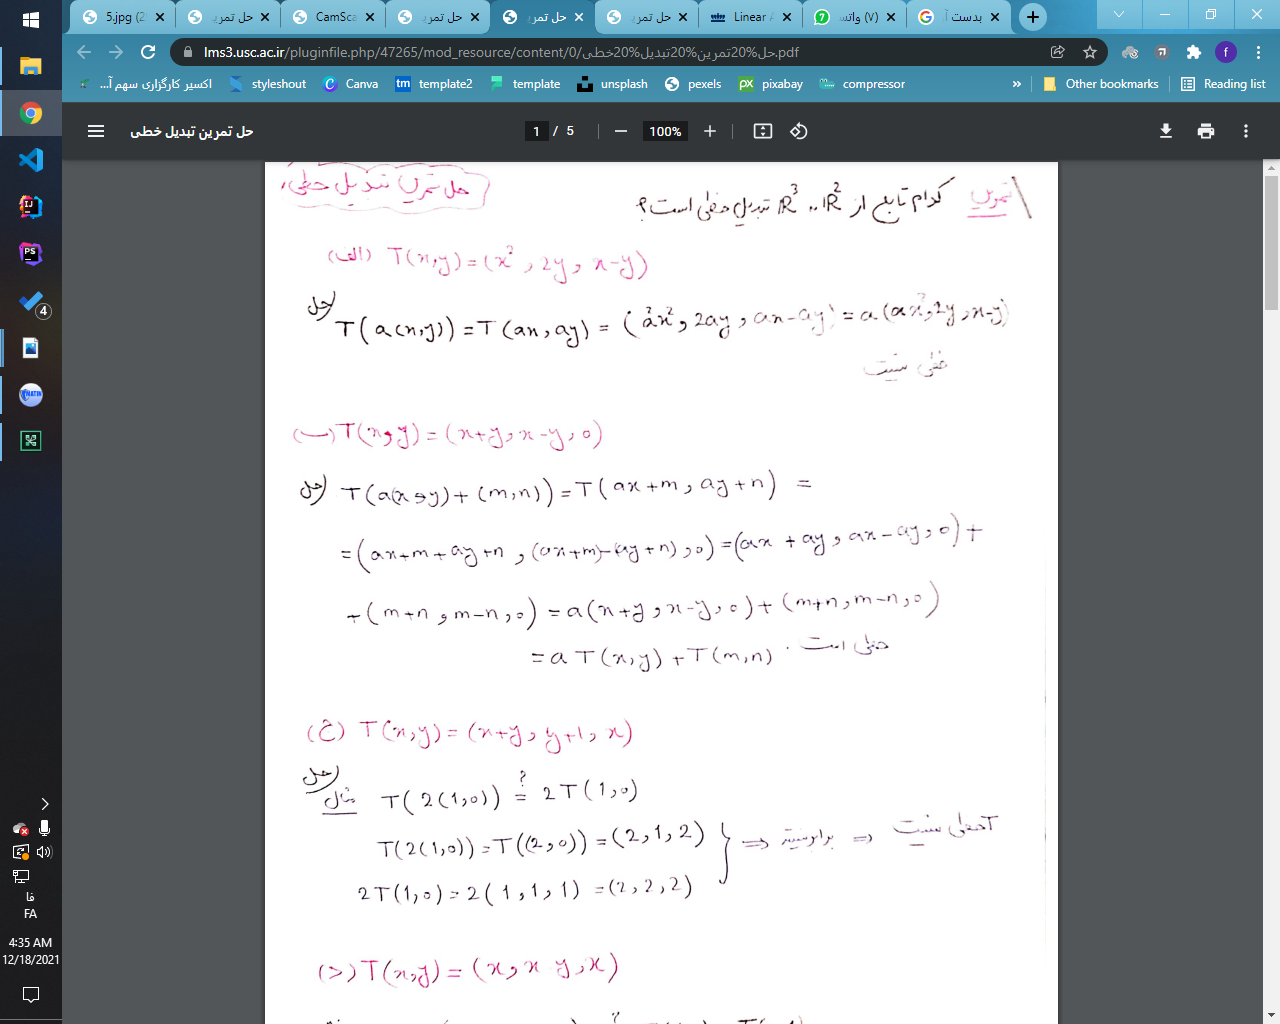 5.jpg (2
حل تمرین
CamSca
حل تمرین
حل تمری
حل تمرین
Linear A
(۷) واتس
بدست آ
lms3.usc.ac.ir/pluginfile.php/47265/mod_resource/content/0/حل%20تمرین%20تبدیل%20خطی.pdf
اکسیر کارگزاری سهم آ...
styleshout
Canva
template2
template
unsplash
pexels
pixabay
compressor
»
Other bookmarks
Reading list
حل تمرین تبدیل خطی
1 / 5
100%
حل تمرین تبدیل خطی
تمرین کدام تابع از R² به R³ تبدیل خطی است؟
الف) T(x,y)=(x², 2y, x-y)
حل) T(a(x,y))=T(ax, ay) = (a²x², 2ay, ax-ay) = a(ax², 2y, x-y)
خطی نیست
ب) T(x,y) = (x+y, x-y, 0)
حل) T(a(x,y)+(m,n))=T(ax+m, ay+n) =
=(ax+m+ay+n, (ax+m)-(ay+n), 0)=(ax+ay, ax-ay, 0)+
+(m+n, m-n, 0) = a(x+y, x-y, 0)+(m+n, m-n, 0)
=a T(x,y)+T(m,n) . خطی است
ج) T(x,y)=(x+y, y+1, x)
حل)
مثال T(2(1,0)) ≟ 2T(1,0)
T(2(1,0))=T((2,0))=(2,1,2)
} ⇒ برابر نیستند ⇒ T خطی نیست
2T(1,0)=2(1,1,1)=(2,2,2)
د) T(x,y)=(x, x y, x)
4
فا
FA
4:35 AM
12/18/2021